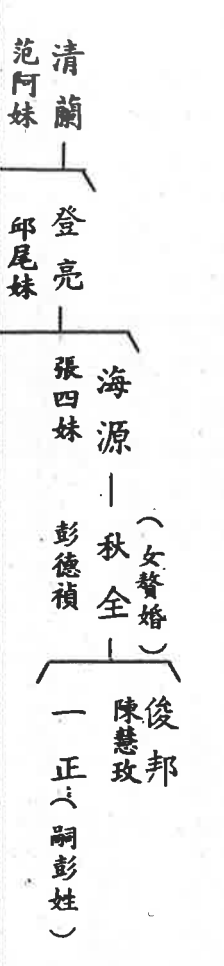 清蘭
范阿妹
登亮
邱尾妹
海源
張四妹
秋全
(女贅婚)
彭德禎
俊邦
陳慧玫
一正(嗣彭姓)